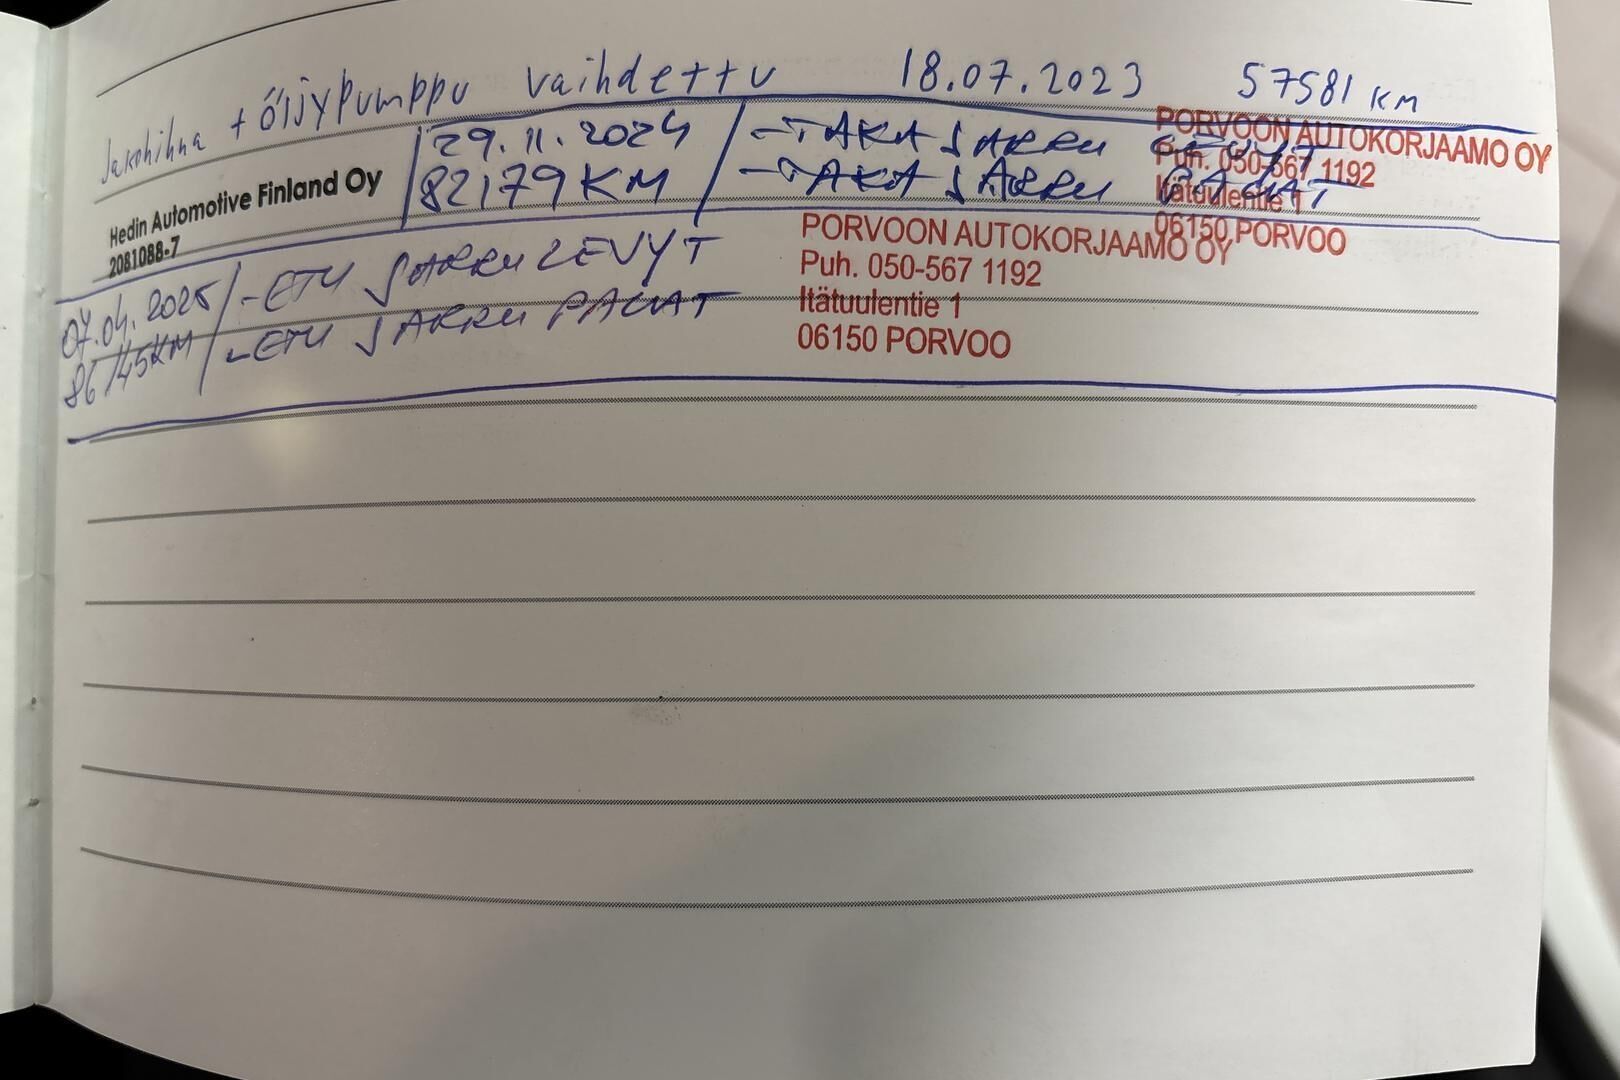 Jakohihna + Öljypumppu vaihdettu 18.07.2023 57581 KM
Hedin Automotive Finland Oy
2081088-7
29.11.2024
82179 KM
- TAKA JARRU LEVYT
- TAKA JARRU PALAT
PORVOON AUTOKORJAAMO OY
Puh. 050-567 1192
Itätuulentie 1
06150 PORVOO
07.04.2025
86145KM
- ETU JARRU LEVYT
- ETU JARRU PALAT
PORVOON AUTOKORJAAMO OY
Puh. 050-567 1192
Itätuulentie 1
06150 PORVOO